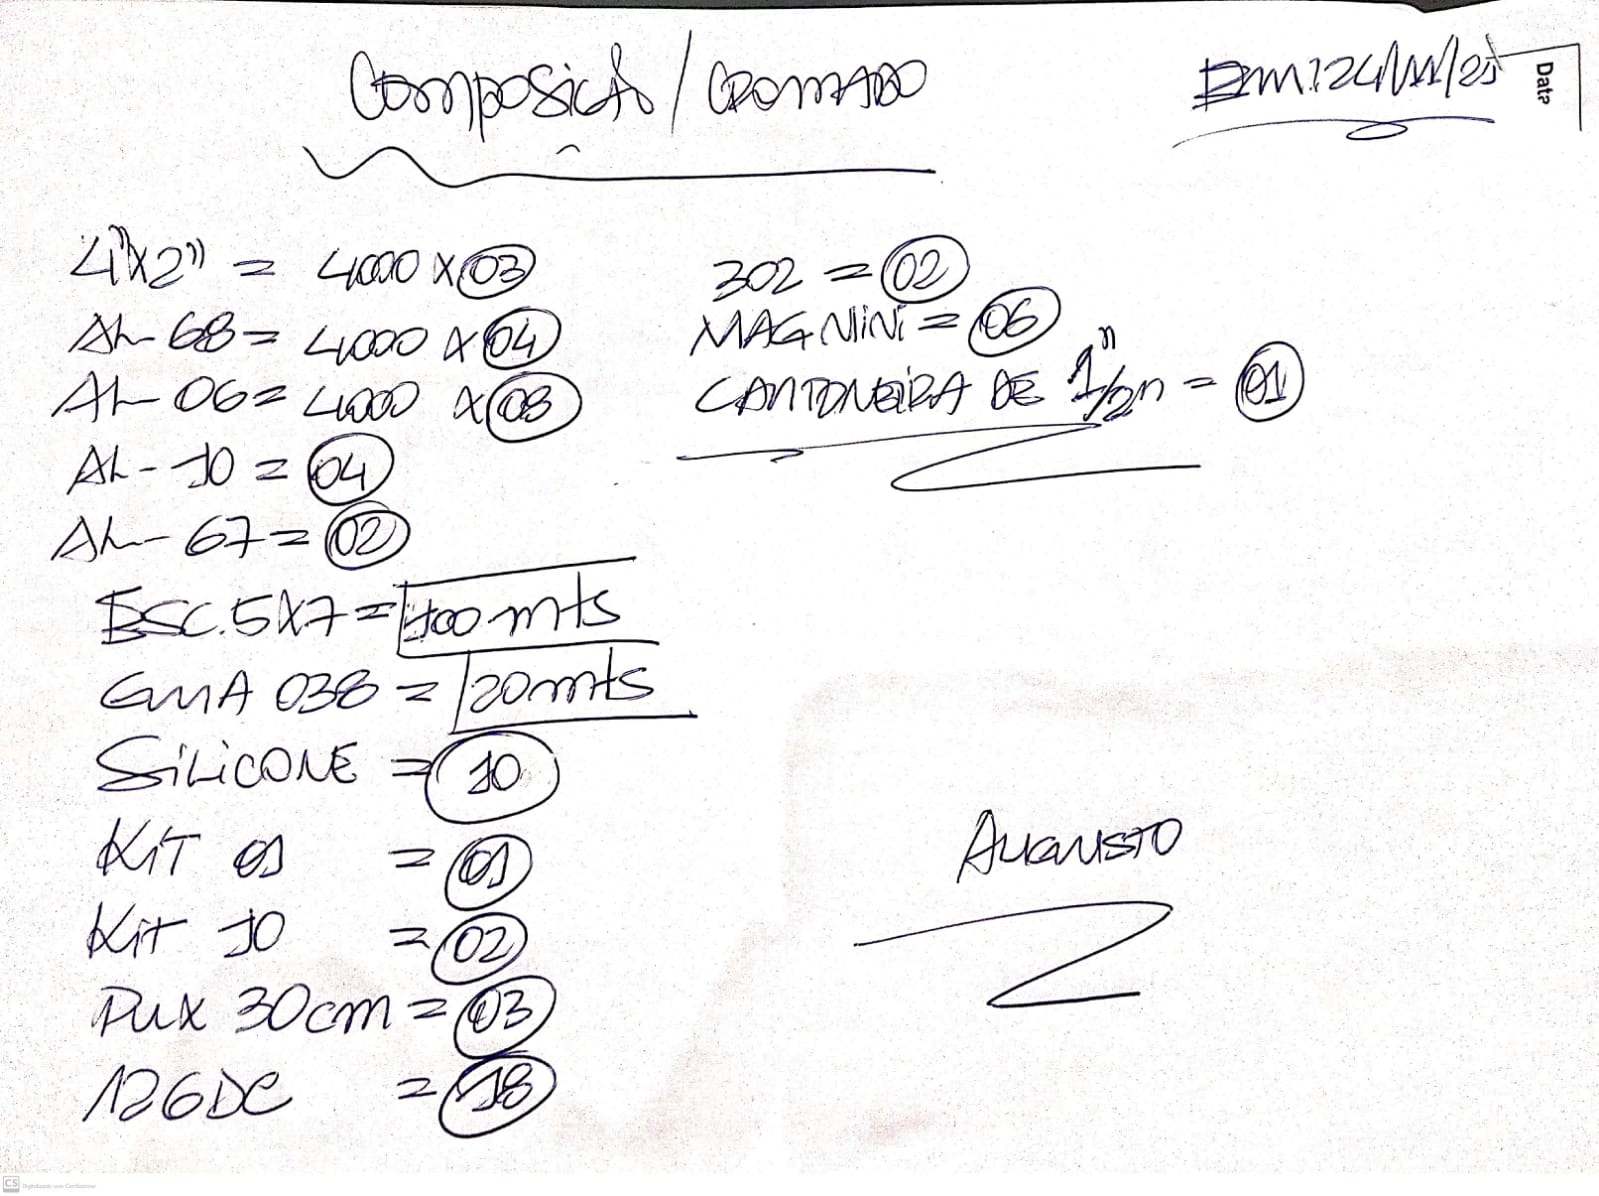 COMPOSIÇÃO / CROMADO
EM: 24/11/25
Data
4"X2" = 4000 X 03
AL-68 = 4000 X 04
AL-06 = 4000 X 08
AL-10 = 04
AL-67 = 02
ESC. 5X7 = 100 mts
GUIA 038 = 20 mts
SILICONE = 10
KIT 01 = 01
Kit 10 = 02
PUX 30cm = 03
126DC = 18
302 = 02
MAGNINI = 06
CANTONEIRA DE 1"1/2" = 01
AUGUSTO
CS Digitalizado com CamScanner